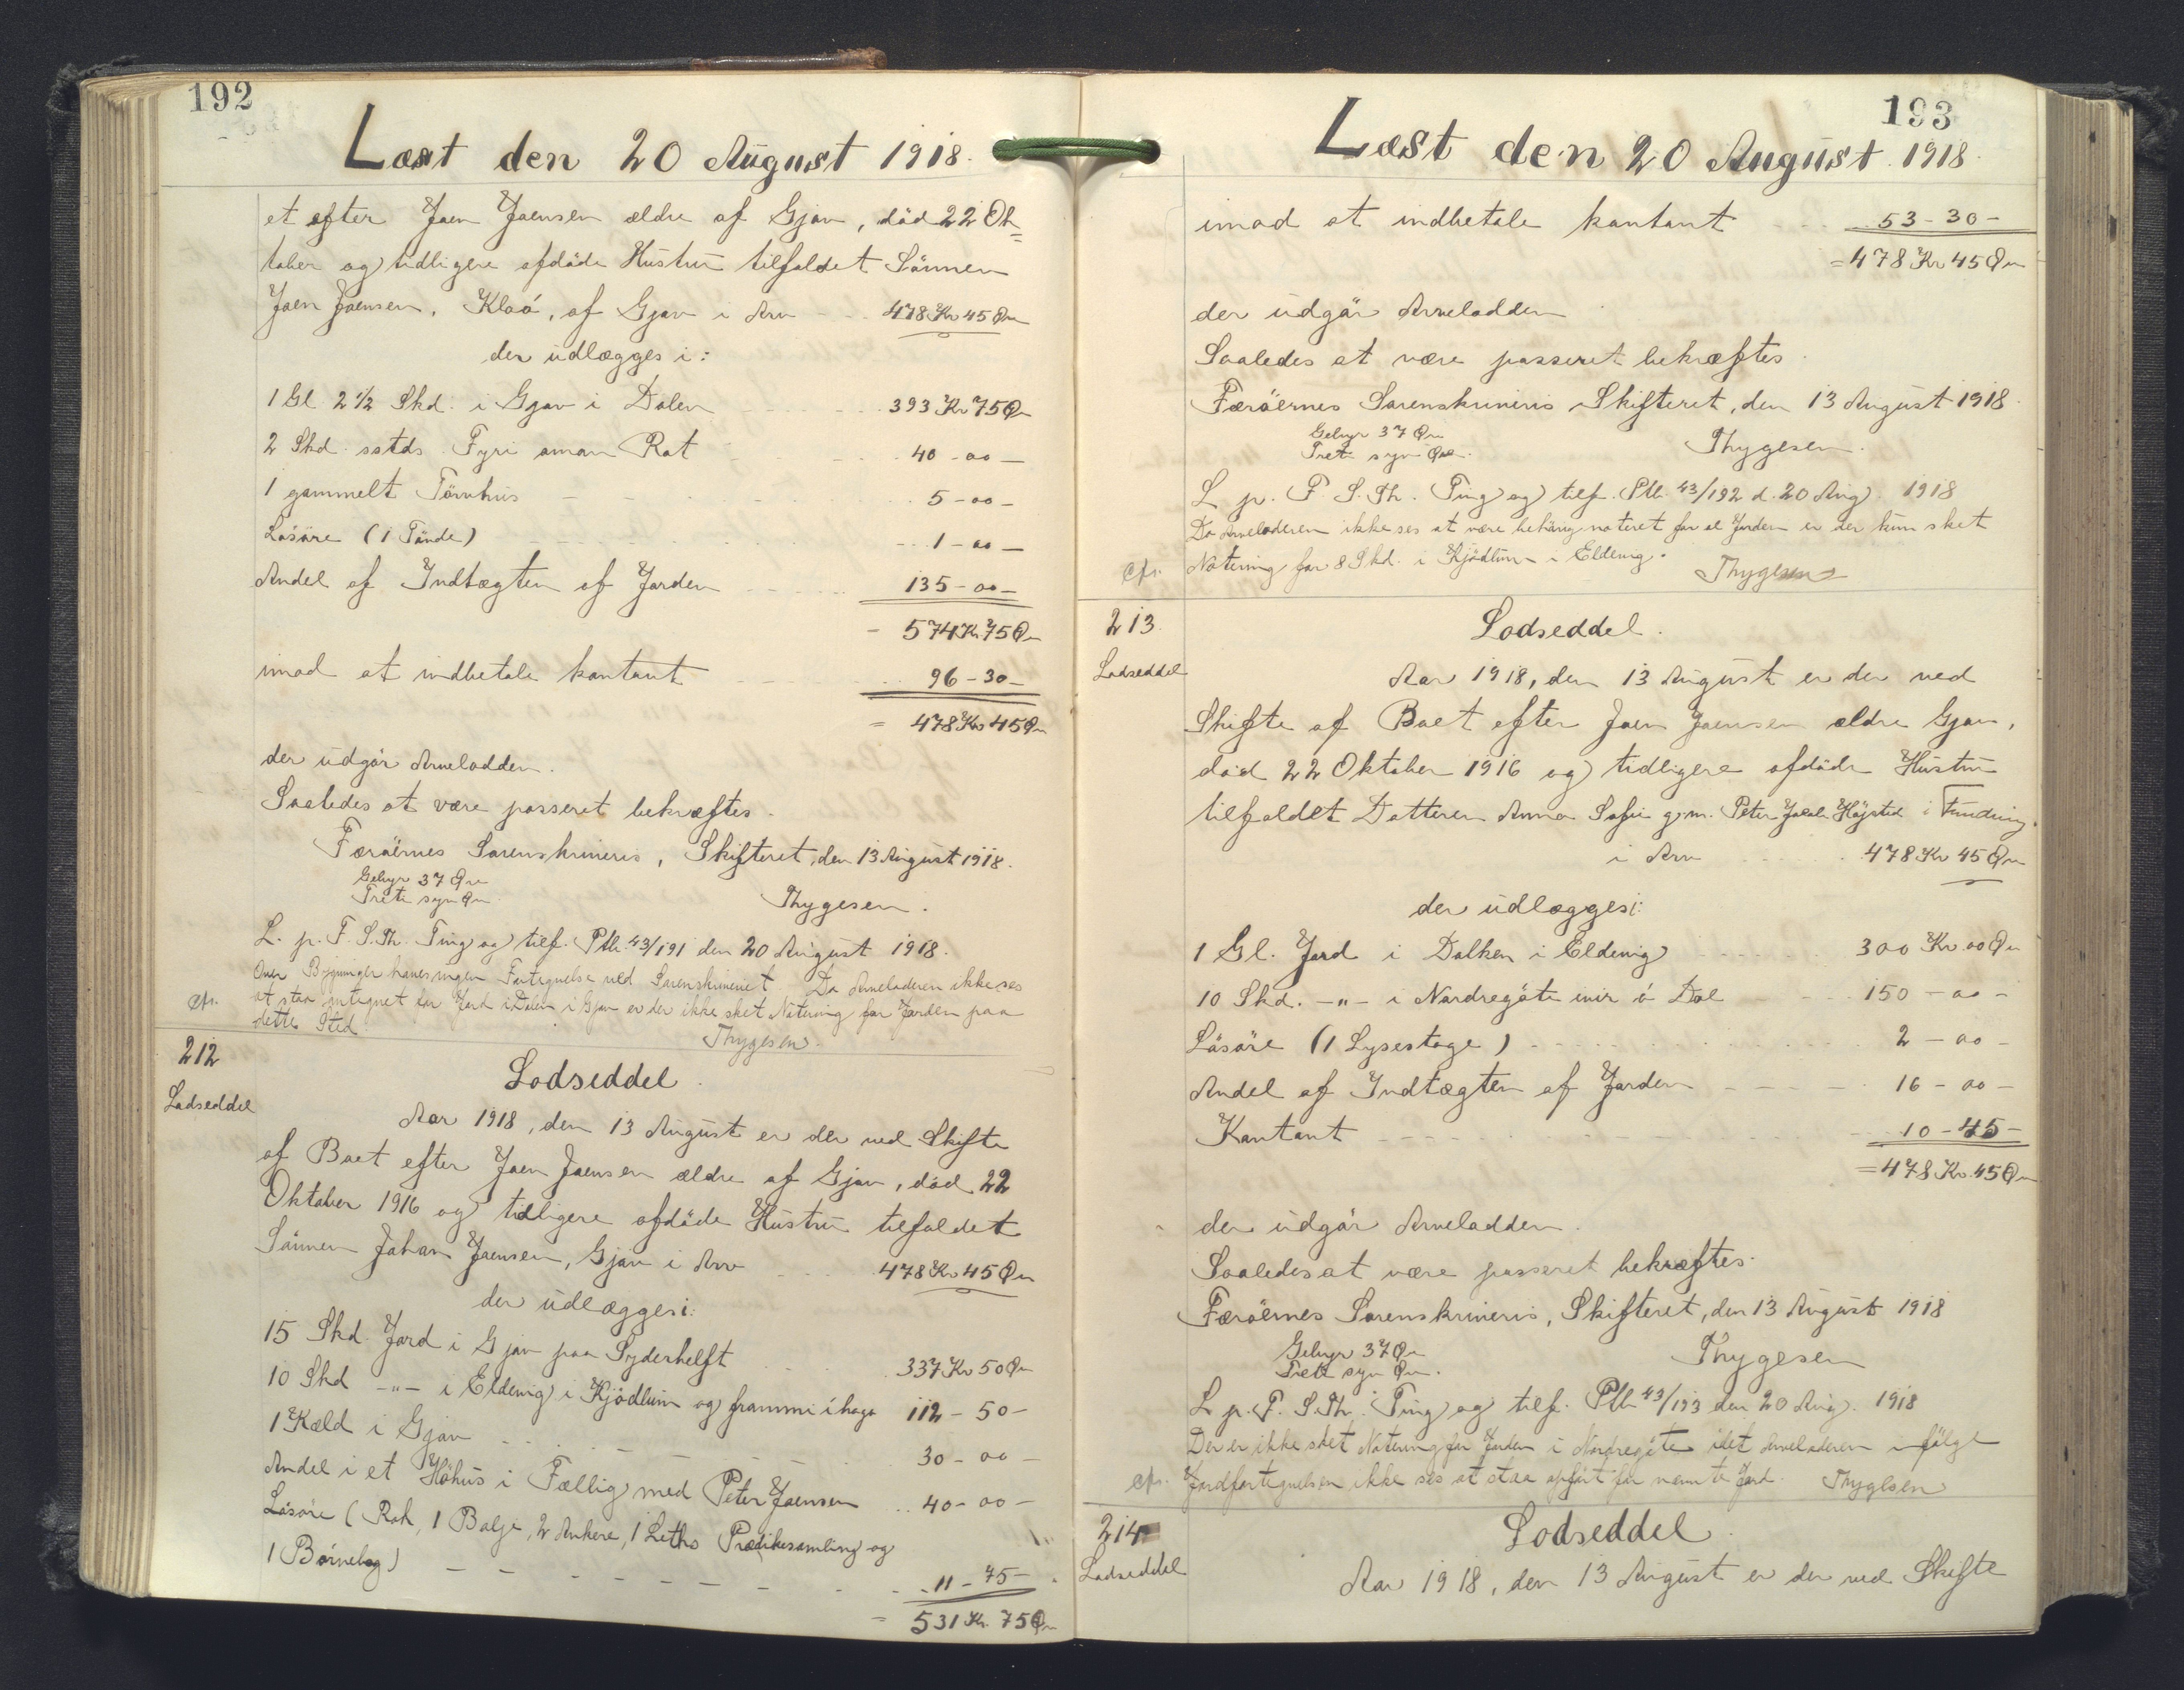 192
Læst den 20 August 1918.
et efter Joen Joensen ældre af Gjov, død 22 Ok=
tober og tidligere afdøde Hustru tilfaldet Sönnen
Joen Joensen, Kloá, af Gjov i Arv 478 Kr 45 Øre
der udlægges i:
1 Gl. 2 1/2 Skd. i Gjov i Dalen 393 Kr 75 Ø
2 Skd. sstds Fyri oman Rat 40 - 00 -
1 gammelt Törvhus 5 - 00 -
Lösöre (1 Tönde) 1 - 00 -
Andel af Indtægten af Jorden 135 - 00 -
= 574 Kr 75 Øre
imod at indbetale kontant 96 - 30 -
= 478 Kr 45 Øre
der udgör Arvelodden.
Saaledes at være passeret bekræftes.
Færöernes Sorenskriveri, Skifteret, den 13 August 1918.
Gebyr 37 Øre
Treti syv Øre
Thygesen.
L. p. F. S. Th. Ting og tilf. Ptb. 43/191 den 20 August 1918.
Over Bygninger haves ingen Fortegnelse ved Sorenskriveriet. Da Arveladeren ikke ses
cfr. at staa antegnet for Jord i Dalen i Gjov er der ikke sket Notering for Jorden paa
dette Sted.
Thygesen.
212
Lodseddel
Lodseddel.
Aar 1918, den 13 August er der ved Skifte
af Boet efter Joen Joensen ældre af Gjov, död 22
Oktober 1916 og tidligere afdöde Hustru tilfaldet
Sönnen Johan Joensen, Gjov i Arv 478 Kr 45 Øre
der udlægges i:
15 Skd. Jord i Gjov paa Syderhelft 337 Kr 50 Øre
10 Skd -"- i Eldevig i Kjödlum og frammi í haga 112 - 50 -
1 Kæld i Gjov 30 - 00 -
Andel i et Höhus i Fællig med Peter Joensen 40 - 00 -
Lösöre (Rok, 1 Balje, 2 Ankere, 1 Leths Prædikesamling og
1 Börnebog) 11 - 75 -
= 531 Kr. 75 Øre
193
Læst den 20 August 1918.
imod at indbetale kontant 53 - 30 -
= 478 Kr 45 Øre
der udgör Arvelodden
Saaledes at være passeret bekræftes.
Færöernes Sorenskriveris Skifteret, den 13 August 1918.
Gebyr 37 Øre
Treti syv Øre.
Thygesen.
L. p. F. S. Th. Ting og tilf. Ptb. 43/192 d. 20 Aug. 1918
Da Arveladeren ikke ses at være behörig noteret for al Jorden er der kun sket
cfr. Notering for 8 Skd. i Kjödlum i Eldevig.
Thygesen
213.
Lodseddel
Lodseddel.
Aar 1918, den 13 August er der ved
Skifte af Boet efter Joen Joensen ældre Gjov,
död 22 Oktober 1916 og tidligere afdöde Hustru
tilfaldet Datteren Anna Sofie g.m. Peter Jacob Höjsted i Funding
i Arv 478 Kr 45 Øre
der udlægges i:
1 Gl. Jord i Dalken i Eldevig 300 Kr 00 Øre
10 Skd. -"- i Nordregöte inir á Dal 150 - 00 -
Lösöre (1 Lysestage) 2 - 00 -
Andel af Indtægten af Jorden 16 - 00 -
Kontant 10 - 45 -
= 478 Kr. 45 Øre
der udgör Arvelodden.
Saaledes at være passeret bekræftes.
Færöernes Sorenskriveris, Skifteret, den 13 August 1918
Gebyr 37 Øre
Treti syv Øre.
Thygesen
L. p. F. S. Th. Ting og tilf. Ptb. 43/193 den 20 Aug. 1918
Der er ikke sket Notering for Jorden i Nordregöte idet Arveladeren ifölge
cfr. Jordfortegnelsen ikke ses at staa opfört for nævnte Jord. Thygesen
214
Lodseddel
Lodseddel.
Aar 1918, den 13 August er der ved Skifte